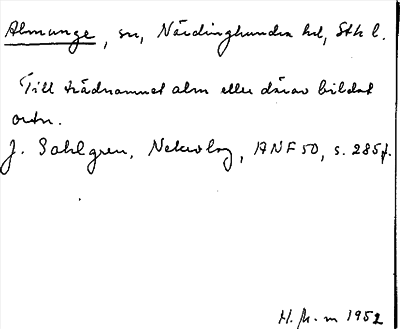 Almunge, sn, Närdinghundra hd, Sthl l.
Till trädnamnet alm eller därav bildat
ortn.
J. Sahlgren, Nekrolog, ANF 50, s. 285f.
H. M-m 1952